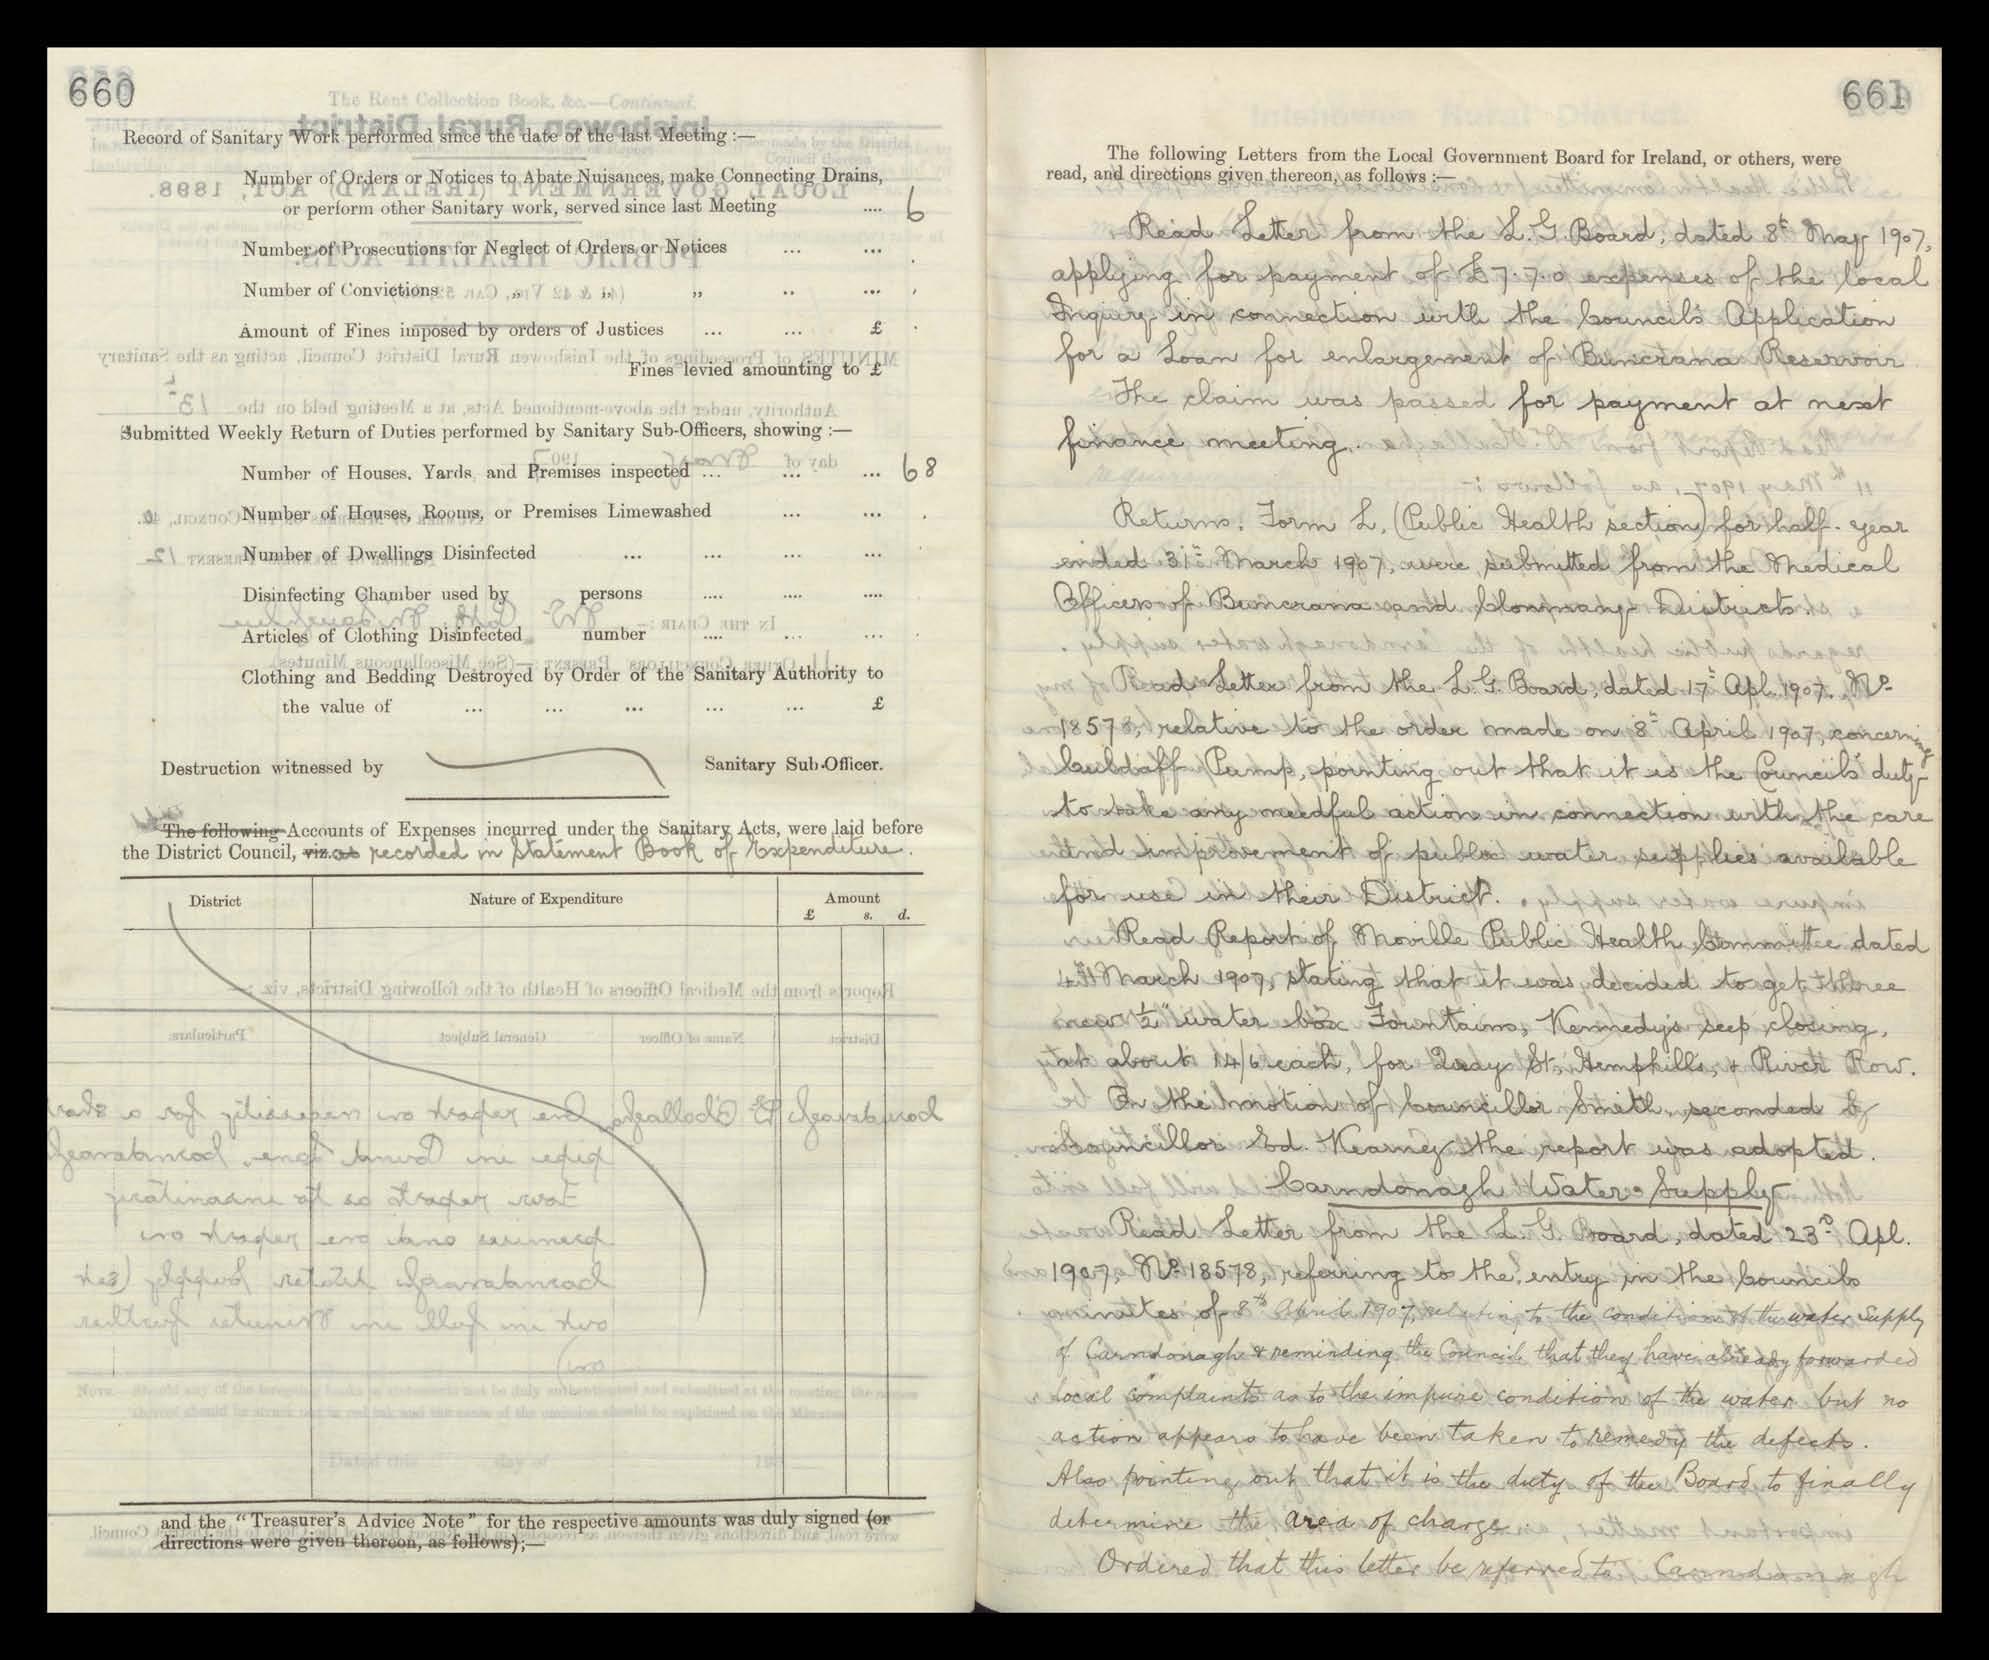 660
Record of Sanitary Work performed since the date of the last Meeting :—
Number of Orders or Notices to Abate Nuisances, make Connecting Drains,
or perform other Sanitary work, served since last Meeting .... 6
Number of Prosecutions for Neglect of Orders or Notices ... ...
Number of Convictions „ „ „ .. ...
Amount of Fines imposed by orders of Justices ... ... £
Fines levied amounting to £
Submitted Weekly Return of Duties performed by Sanitary Sub-Officers, showing :—
Number of Houses, Yards and Premises inspected ... ... ... 68
Number of Houses, Rooms, or Premises Limewashed ... ...
Number of Dwellings Disinfected ... ... ... ...
Disinfecting Chamber used by persons .... .... ....
Articles of Clothing Disinfected number .... ... ...
Clothing and Bedding Destroyed by Order of the Sanitary Authority to
the value of ... ... ... ... ... £
Destruction witnessed by Sanitary Sub-Officer.
The following Accounts of Expenses incurred under the Sanitary Acts, were laid before
the District Council, viz. as recorded in Statement Book of Expenditure.
District Nature of Expenditure Amount
£ s. d.
and the "Treasurer's Advice Note" for the respective amounts was duly signed (or
directions were given thereon, as follows);—
661
The following Letters from the Local Government Board for Ireland, or others, were
read, and directions given thereon, as follows :—
Read Letter from the L. G. Board, dated 8th May 1907,
applying for payment of £7.7.0 expenses of the local
Inquiry in connection with the Council's Application
for a Loan for enlargement of Buncrana Reservoir
The claim was passed for payment at next
finance meeting.
Returns, Form L, (Public Health section) for half-year
ended 31st March 1907, were submitted from the Medical
Officers of Buncrana and Clonmany Districts
Read Letter from the L. G. Board, dated 17th Apl. 1907. No.
18578, relative to the order made on 8th April 1907, concerning
Culdaff Pump, pointing out that it is the Councils' duty
to take any needful action in connection with the care
and improvement of public water supplies available
for use in their District.
Read Report of Moville Public Health Committee dated
4th March 1907, stating that it was decided to get three
new ½" water box Fountains, Kennedy's self closing,
at about 14/6 each, for Quay St, Hemphills, & River Row.
On the motion of Councillor Smith, seconded by
Councillor Ed. Kearney the report was adopted.
Carndonagh Water Supply
Read Letter from the L. G. Board, dated 23rd Apl.
1907, No. 18578, referring to the entry in the Councils
minutes of 8th April 1907, relating to the condition of the water supply
of Carndonagh & reminding the Council that they have already forwarded
local complaints as to the impure condition of the water but no
action appears to have been taken to remedy the defects.
Also pointing out that it is the duty of the Board to finally
determine the area of charge.
Ordered that this letter be referred to Carndonagh